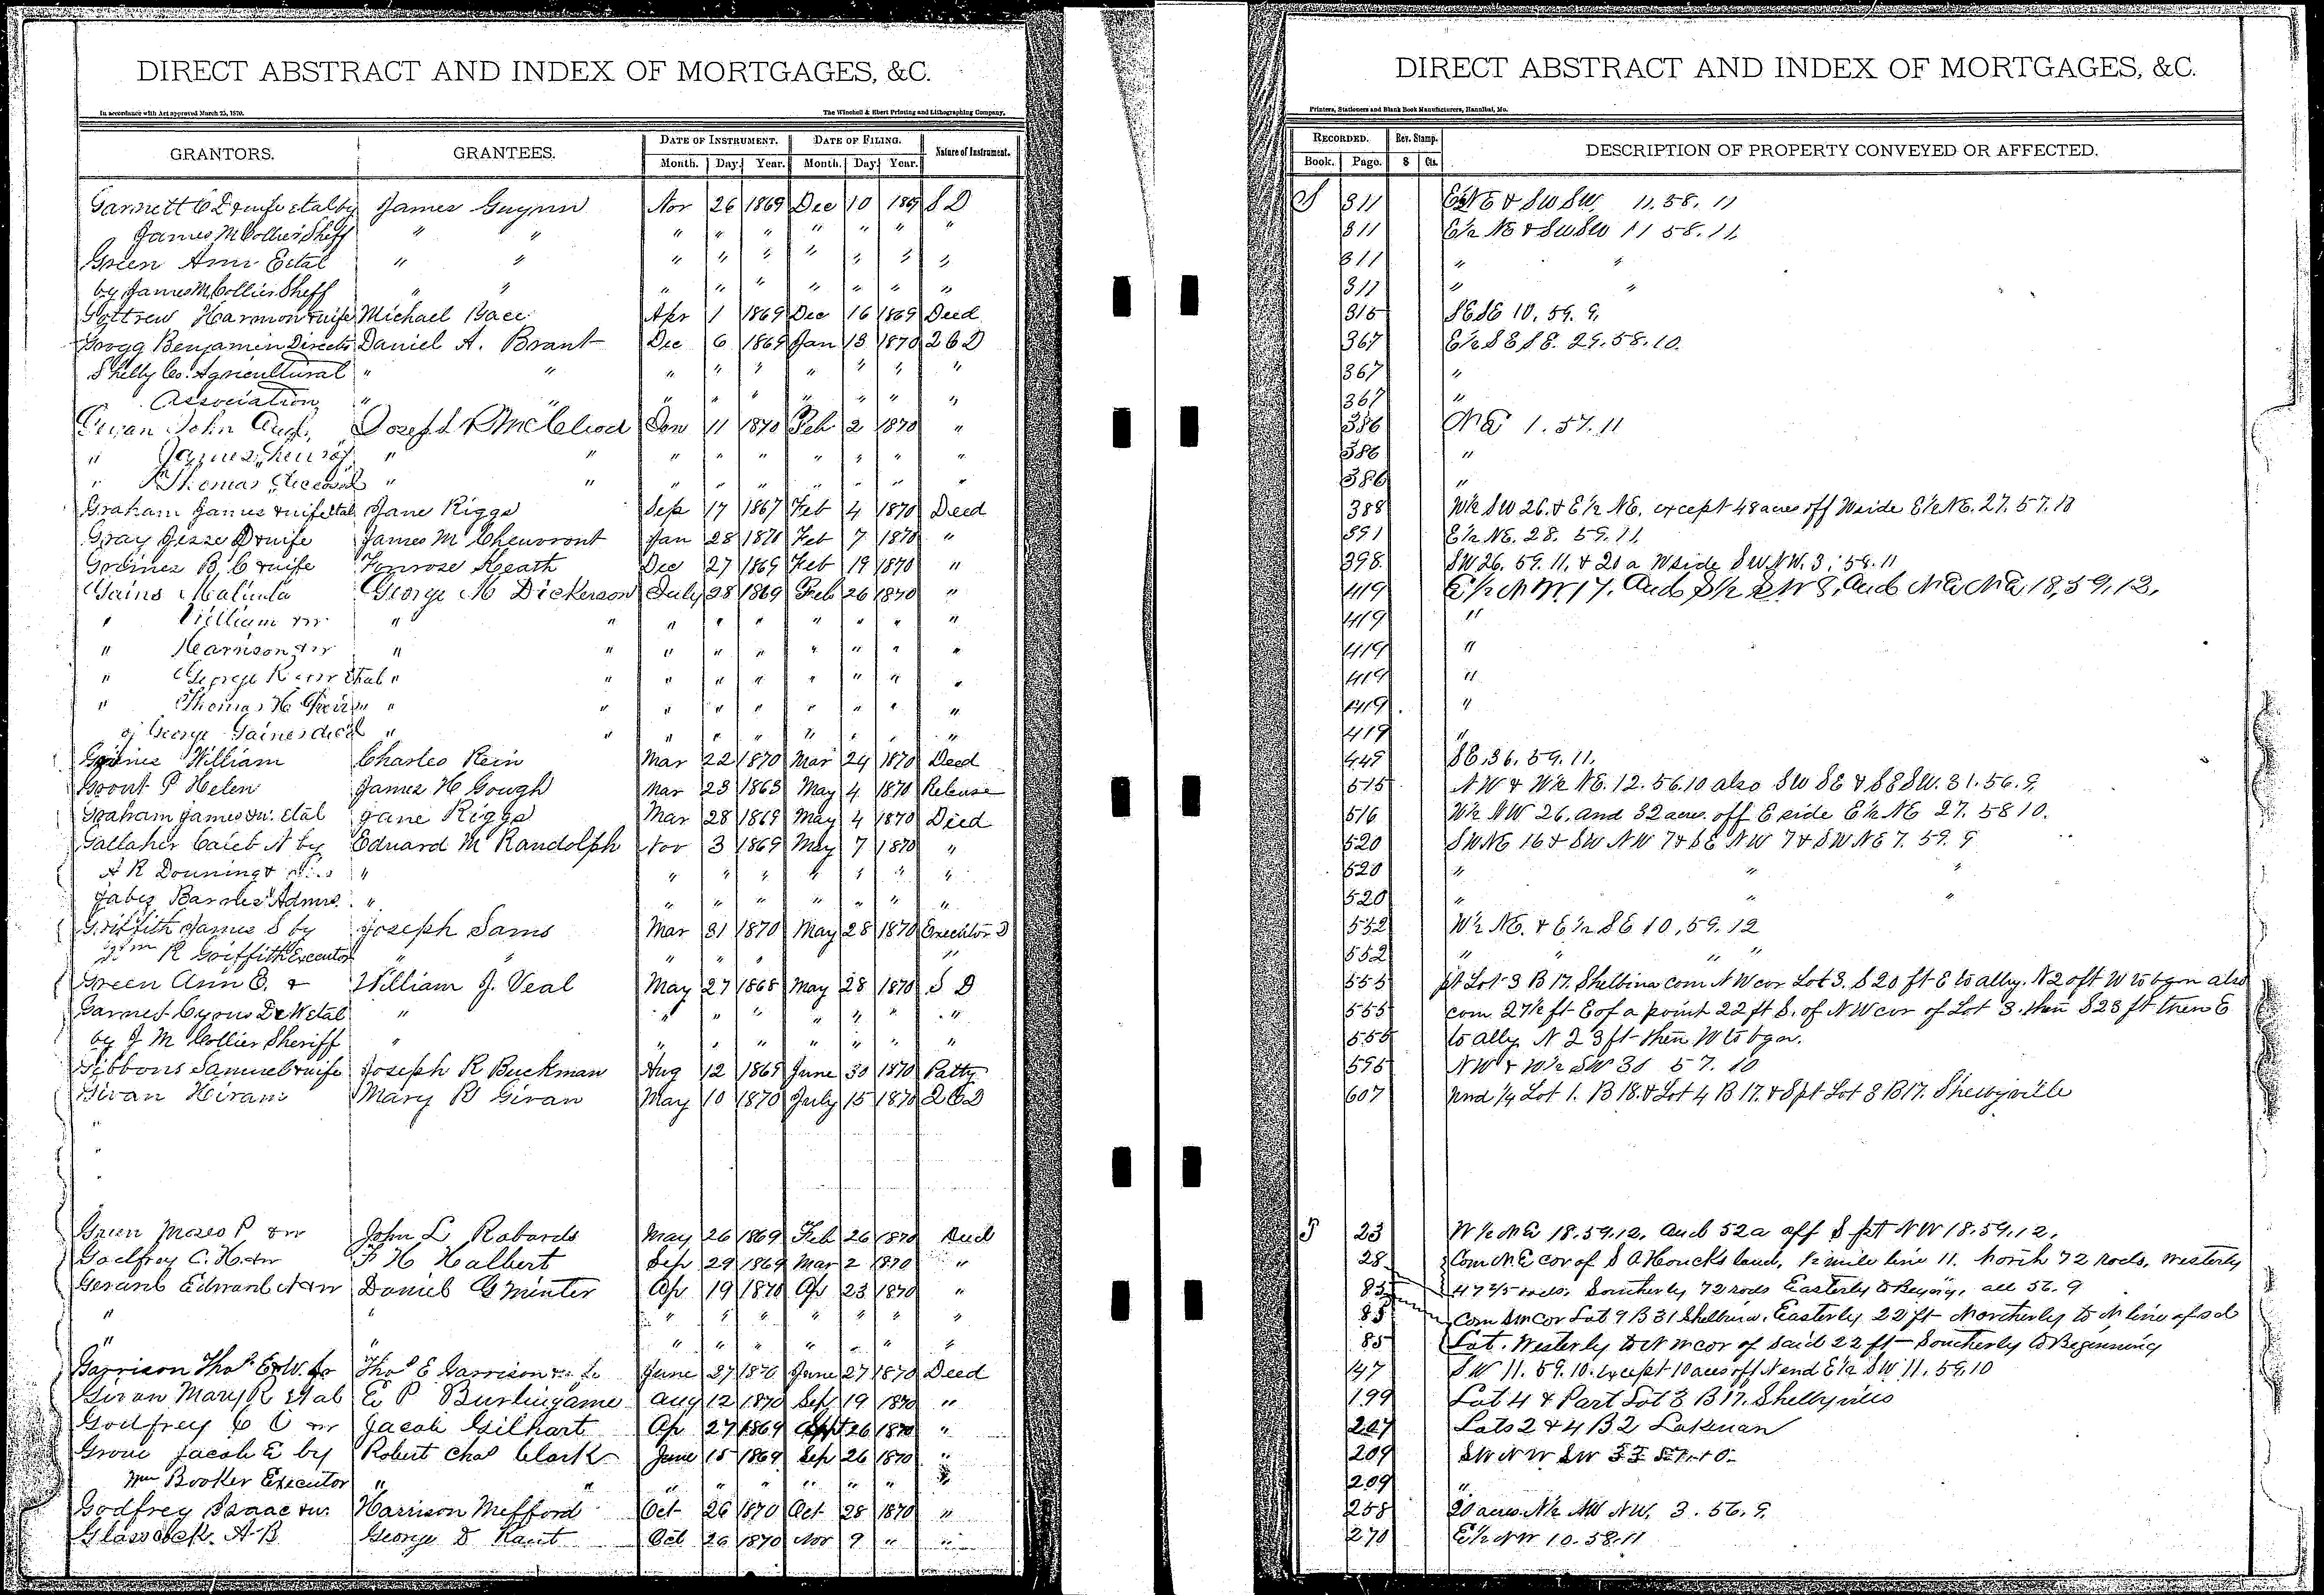 DIRECT ABSTRACT AND INDEX OF MORTGAGES, &C.
In accordance with Act approved March 25, 1870. The Winchell & Ebert Printing and Lithographing Company,
GRANTORS. GRANTEES. DATE OF INSTRUMENT. DATE OF FILING. Nature of Instrument.
Month. Day. Year. Month. Day. Year.
Garnett C D & wife etal by James Gwynn Nov 26 1869 Dec 10 1869 S D
James M Collier Sheff " " " " " " " " "
Green Ann E etal " " " " " " " " "
by James M Collier Sheff " " " " " " " " "
Harmon & wife Michael Apr 1 1869 Dec 16 1869 Deed
Grogg Benjamin Directr Daniel A. Brant Dec 6 1869 Jan 13 1870 2 C D
Shelby Co. Agricultural " " " " " " " " "
Association " " " " " " " " "
John Joseph McCleod Jan 11 1870 Feb 2 1870 "
" James " " " " " " " " "
" Thomas " " " " " " " " "
Graham James & wife etal Jane Riggs Sep 17 1867 Feb 4 1870 Deed
Gray Jesse D & wife James M Cheuvront Jan 28 1870 Feb 7 1870 "
B. C & wife Heath Dec 27 1869 Feb 19 1870 "
Gains Malinda George M Dickerson July 28 1869 Feb 26 1870 "
" William & w " " " " " " " " "
" Harrison & w " " " " " " " " "
" George R & w etal " " " " " " " " "
" Thomas H " " " " " " " "
of George Gaines decd " " " " " " " " "
William Charles Rein Mar 22 1870 Mar 24 1870 Deed
Grout P Helen James H Gough Mar 23 1863 May 4 1870 Release
Graham James & w. etal Jane Riggs Mar 28 1869 May 4 1870 Deed
Gallaher Caleb N by Edward M Randolph Nov 3 1869 May 7 1870 "
A R Downing & " " " " " " " "
Jabez Barnes Admrs. " " " " " " " "
Griffith James S by Joseph Sams Mar 31 1870 May 28 1870 Executor D
Wm R Griffith Executor " " " " " "
Green Ann E. & William J. Veal May 27 1868 May 28 1870 S D
Garnet Cyrus D & W etal " " " " " " " "
by J M Collier Sheriff " " " " " " " "
Gibbons Samuel & wife Joseph R Buckman Aug 12 1869 June 30 1870 Patty
Givan Hiram Mary R Givan May 10 1870 July 15 1870 2 C D
"
"
"
Green Moses P & w John L Robards May 26 1869 Feb 26 1870 Deed
Godfrey C. H. & w F H Halbert Sep 29 1869 Mar 2 1870 "
Gerard Edward N & w Daniel G Minter Ap 19 1870 Ap 23 1870 "
" " " " " " " " "
" " " " " " " " "
Garrison Thos E & W. Thos E Garrison June 27 1870 June 27 1870 Deed
Givan Mary R etal E P Burlingame Aug 12 1870 Sep 19 1870 "
Godfrey C C & w Jacob Gilhart Ap 27 1869 Sept 26 1870 "
Grove Jacob E by Robert Chas Clark June 15 1869 Sep 26 1870 "
Wm Booker Executor " " " " " " " " "
Godfrey Isaac & w. Harrison Mefford Oct 26 1870 Oct 28 1870 "
Glasscock. A B George D Oct 26 1870 Nov 9 " "
DIRECT ABSTRACT AND INDEX OF MORTGAGES, &C.
Printers, Stationers and Blank Book Manufacturers, Hannibal, Mo.
RECORDED. Rev. Stamp. DESCRIPTION OF PROPERTY CONVEYED OR AFFECTED.
Book. Page. $ Cts.
S 311 E½ NE & SW SW. 11. 58. 11
311 E½ NE & SW SW 11 58. 11.
311 " "
311 " "
315 SE SE 10. 59. 9.
367 E½ SE SE. 29. 58. 10.
367 "
367 "
386 NE 1. 57. 11
386 "
386 "
388 W½ SW 26. & E½ NE. except 48 acres off W side E½ NE. 27. 57. 10
391 E½ NE. 28. 59. 11.
398. SW 26. 59. 11. & 20 a W side SW. NW. 3. 58. 11
419 E½ NW 17. And S½ SW 8. And NE NE 18, 59, 12.
419 "
419 "
419 "
419 "
419 "
449 SE. 36. 59. 11.
515 NW & W½ NE. 12. 56. 10 also SW SE & SE SW. 31. 56. 9.
516 W½ NW 26. and 32 acres off E side E½ NE 27. 58 10.
520 SW NE 16 & SW NW 7 & SE NW 7 & SW NE 7. 59. 9
520 " " "
520 " " "
552 W½ NE. & E½ SE 10, 59. 12
552 " " "
555 pt Lot 3 B 17. Shelbina com NW cor Lot 3. S 20 ft E to ally. N 20 ft W to bgn also
555 com 27½ ft E of a point 22 ft S. of NW cor of Lot 3. then S 23 ft then E
555 to ally N 23 ft then W to bgn.
595 NW & W½ SW 30 57. 10
607 und ¼ Lot 1. B 18. & Lot 4 B 17. & S pt Lot 3 B 17. Shelbyville
T 23 W½ NE 18. 59. 12. and 52 a off S pt NW 18. 59. 12.
28 Com N. E cor of S A Houcks land, ½ mile line 11. North 72 rods, Westerly
85 47 2/5 rods. Southerly 72 rods Easterly to Beging, all 56. 9
85 Com SW cor Lot 9 B 31 Shelbina. Easterly 22 ft Northerly to N line of sd
85 Lot. Westerly to NW cor of said 22 ft Southerly to Beginning
147 SW 11. 59. 10. except 10 acres off N end E½ SW 11. 59. 10
199 Lot 4 & Part Lot 3 B 17. Shelbyville
207 Lots 2 & 4 B 2 Lakenan
209 SW NW SW 33 57. 10
209 "
258 20 acres N½ NW NW. 3. 56. 9.
270 E½ NW 10. 58. 11